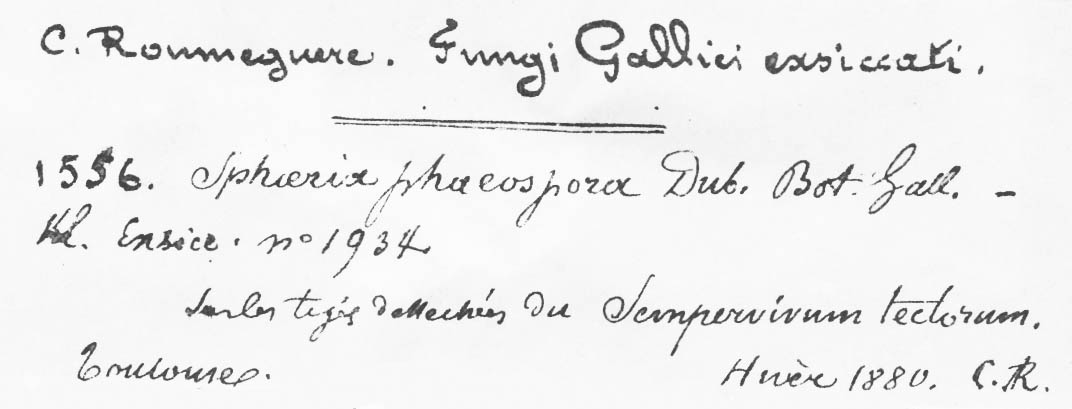 C. Roumeguere. Fungi Gallici exsiccati.
1556. Sphæria phaeospora Dub. Bot. Gall. –
Kl. Exsicc. no 1934
Sur les tiges dessechées du Sempervivum tectorum.
Toulouse. Hivèr 1880. C. R.